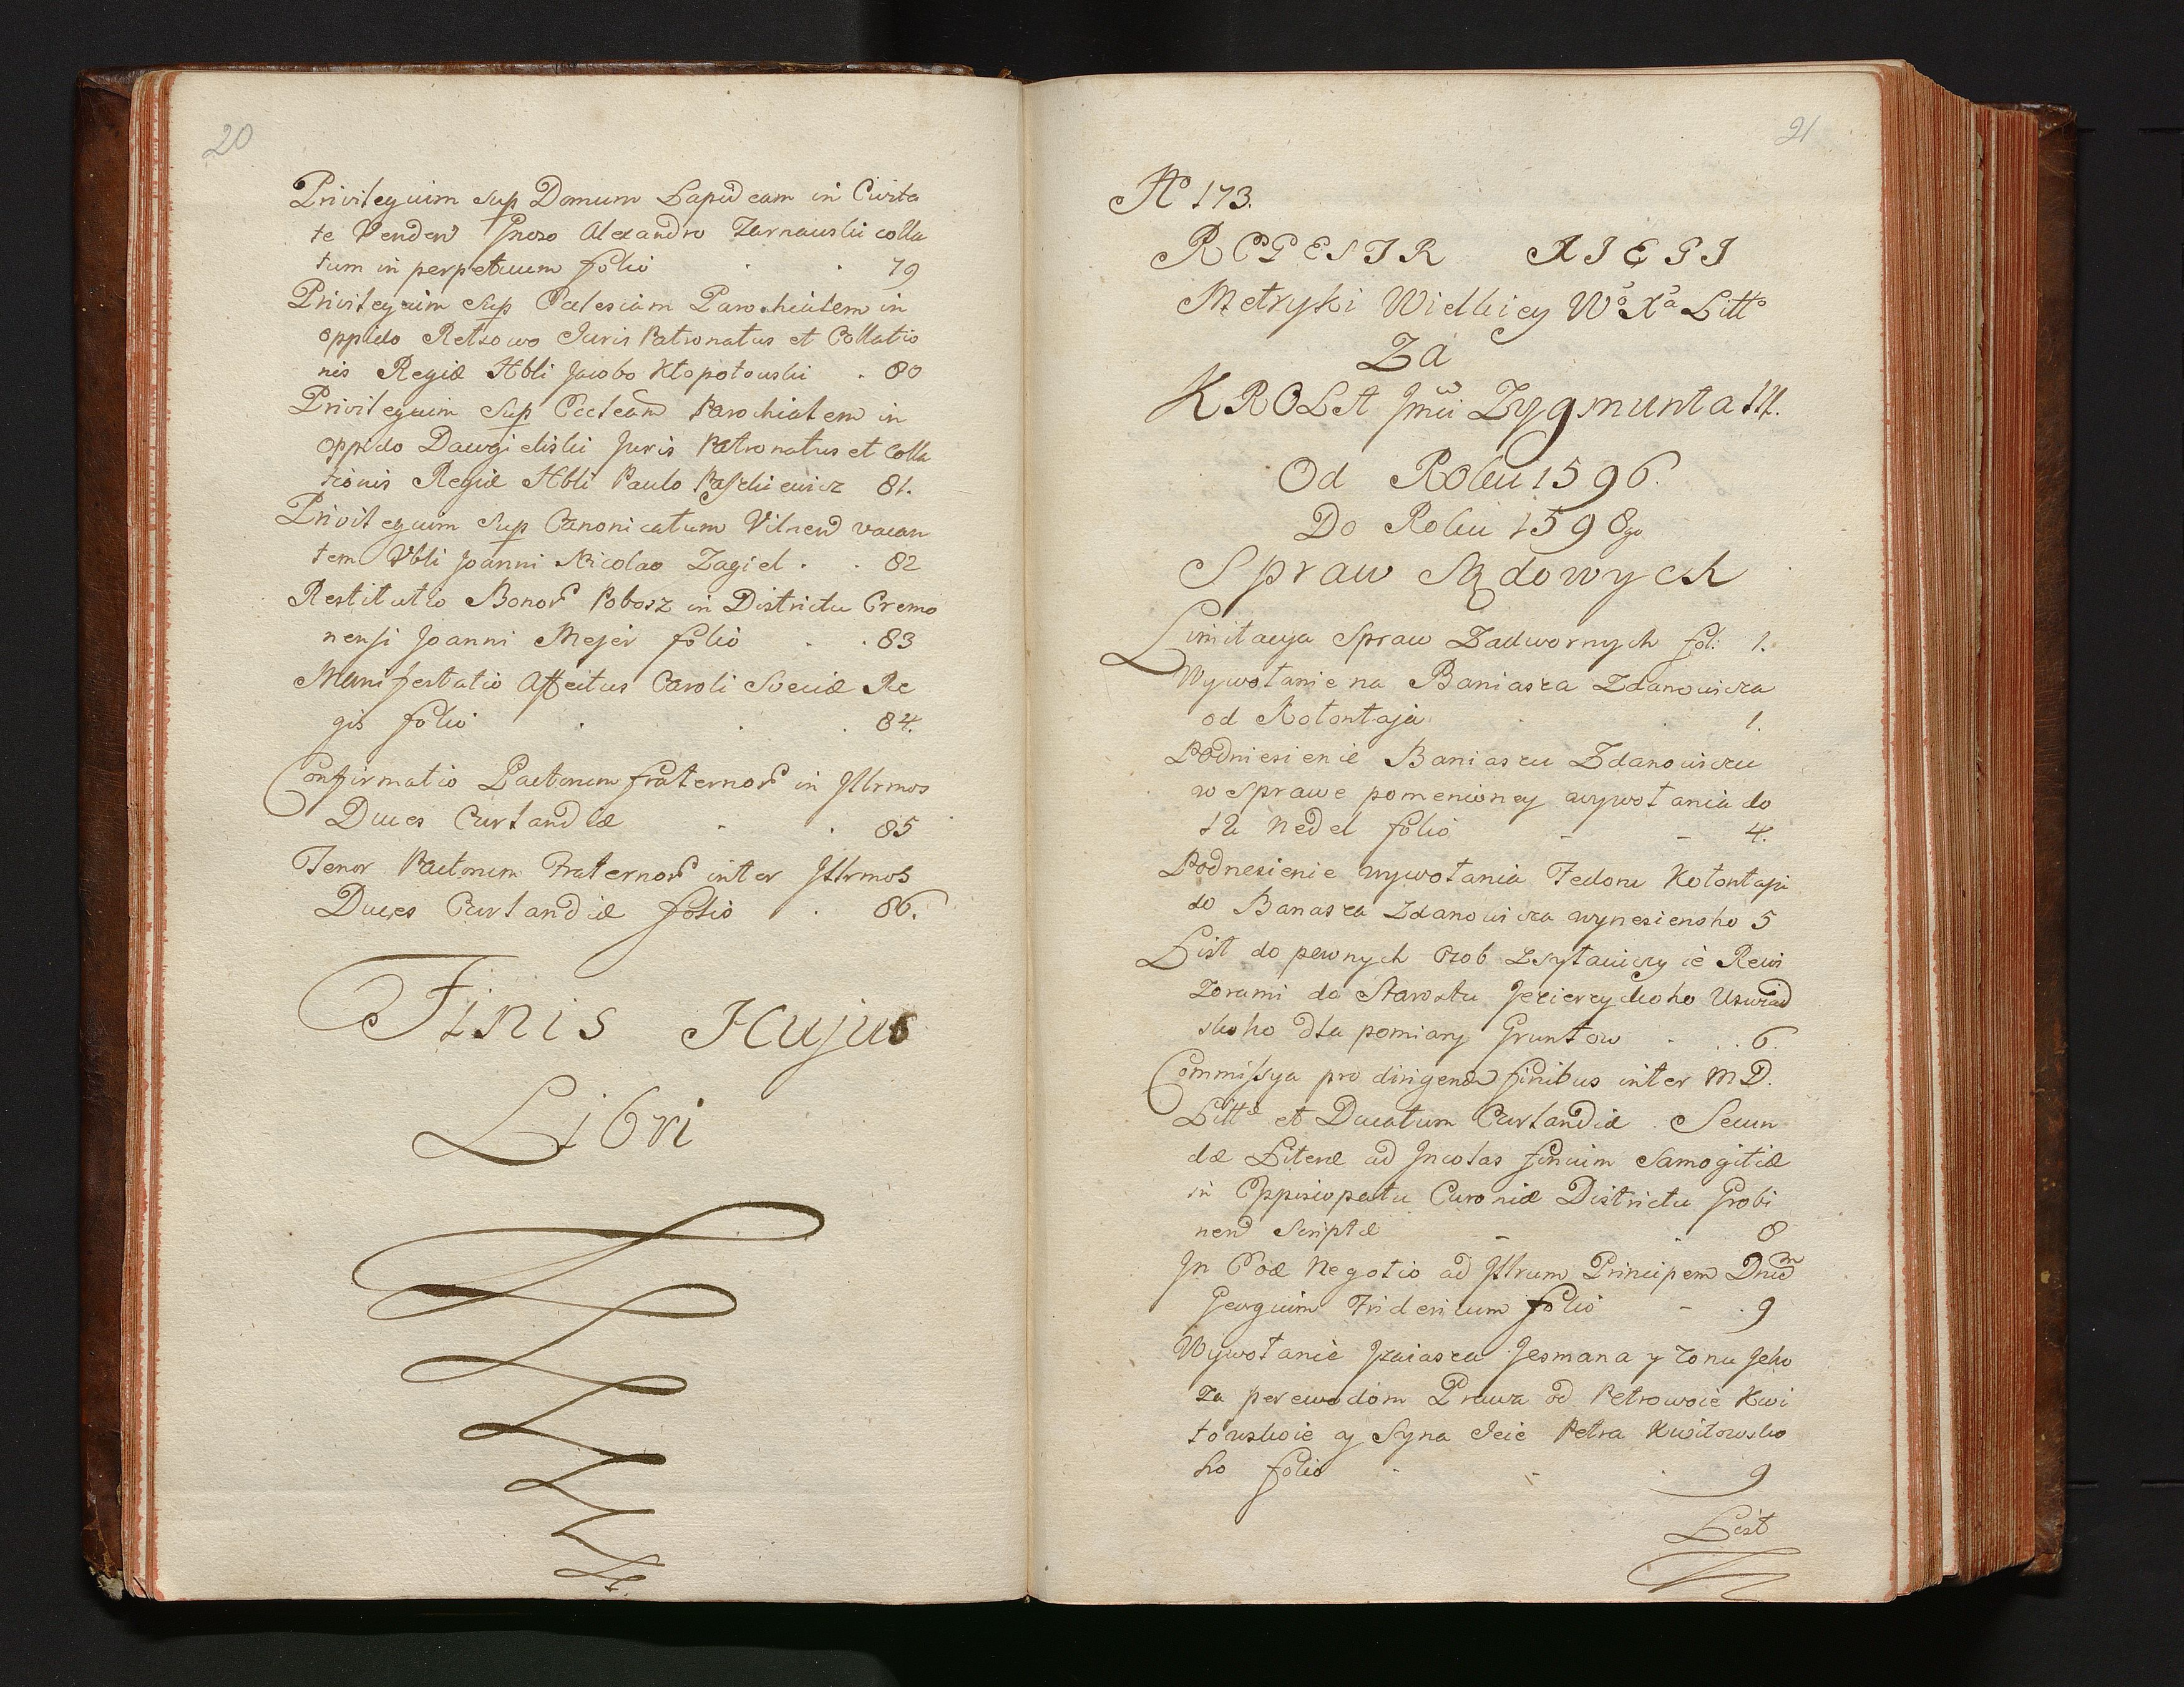 20
Privilegium sup Domum Lapideam in Civita
te Venden Gnoso Alexandro Zarnawski colla
tum in perpetuum folio . . 79
Privilegium sup Ecclesiam Parochialem in
oppido Retowo Juris Patronatus et Collatio
nis Regiæ Hbli Jacobo Kłopotowski . 80
Privilegium sup Eccleam Parochialem in
oppido Dawgieliski Juris Patronatus et Colla
tionis Regiæ Hbli Paulo Paszkiewicz 81.
Privilegium sup Canonicatum Vilnen vacan
tem Vbli Joanni Nicolao Zagiel . . 82
Restitutio Bonor Pobosz in Districtu Cremo
nensi Joanni Mejer folio . . 83
Manifestatio Affectus Caroli Sveciæ Re
gis folio . . . 84.
Confirmatio Pactorum fraternor in Illrmos
Duces Curlandiæ . . 85
Tenor Pactorum Fraternor inter Illrmos
Duces Curlandiæ folio . 86.
Finis Hujus
Libri
21
No 173.
REGESTR XIĘGI
Metryki Wielkiey Wo Xa Litto
Za
KROLA Jmci Zygmunta III.
Od Roku 1596.
Do Roku 1598go
Spraw Sądowych
Limitacya Spraw Zadwornych fol: 1.
Wywołanie na Baniasza Zdanowicza
od Kołontaja . . 1.
Podniesienie Baniaszu Zdanowiczu
w Sprawe pomenioney wywołania do
12 Nedel folio - - 4.
Podnesienie wywołania Fedoru Kołontaju
do Banasza Zdanowicza wynesienoho 5
List do pewnych Osob Zsyłaiuczy ie Rewi
zorami do Starostu Jezieryckoho
skoho dla pomiary Gruntow . . . 6.
Commissya pro dirigend finibus inter M D.
Litte et Ducatum Curlandiæ . Secun
dæ Literæ ad Incolas finium Samogitiæ
in Episcopatu Curoniæ Districtu Grobi
nen Scriptæ - . 8
In Eod Negotio ad Illrum Principem Dnum
Georgium Fridericum folio - . 9
Wywołanie Izaiasza Jesmana y Zonu Jeho
za perewodom Prawa od Petrowoie Kwi
towskoie y Syna Jeie Petra Kwitowsko
ho folio - - . 9
List